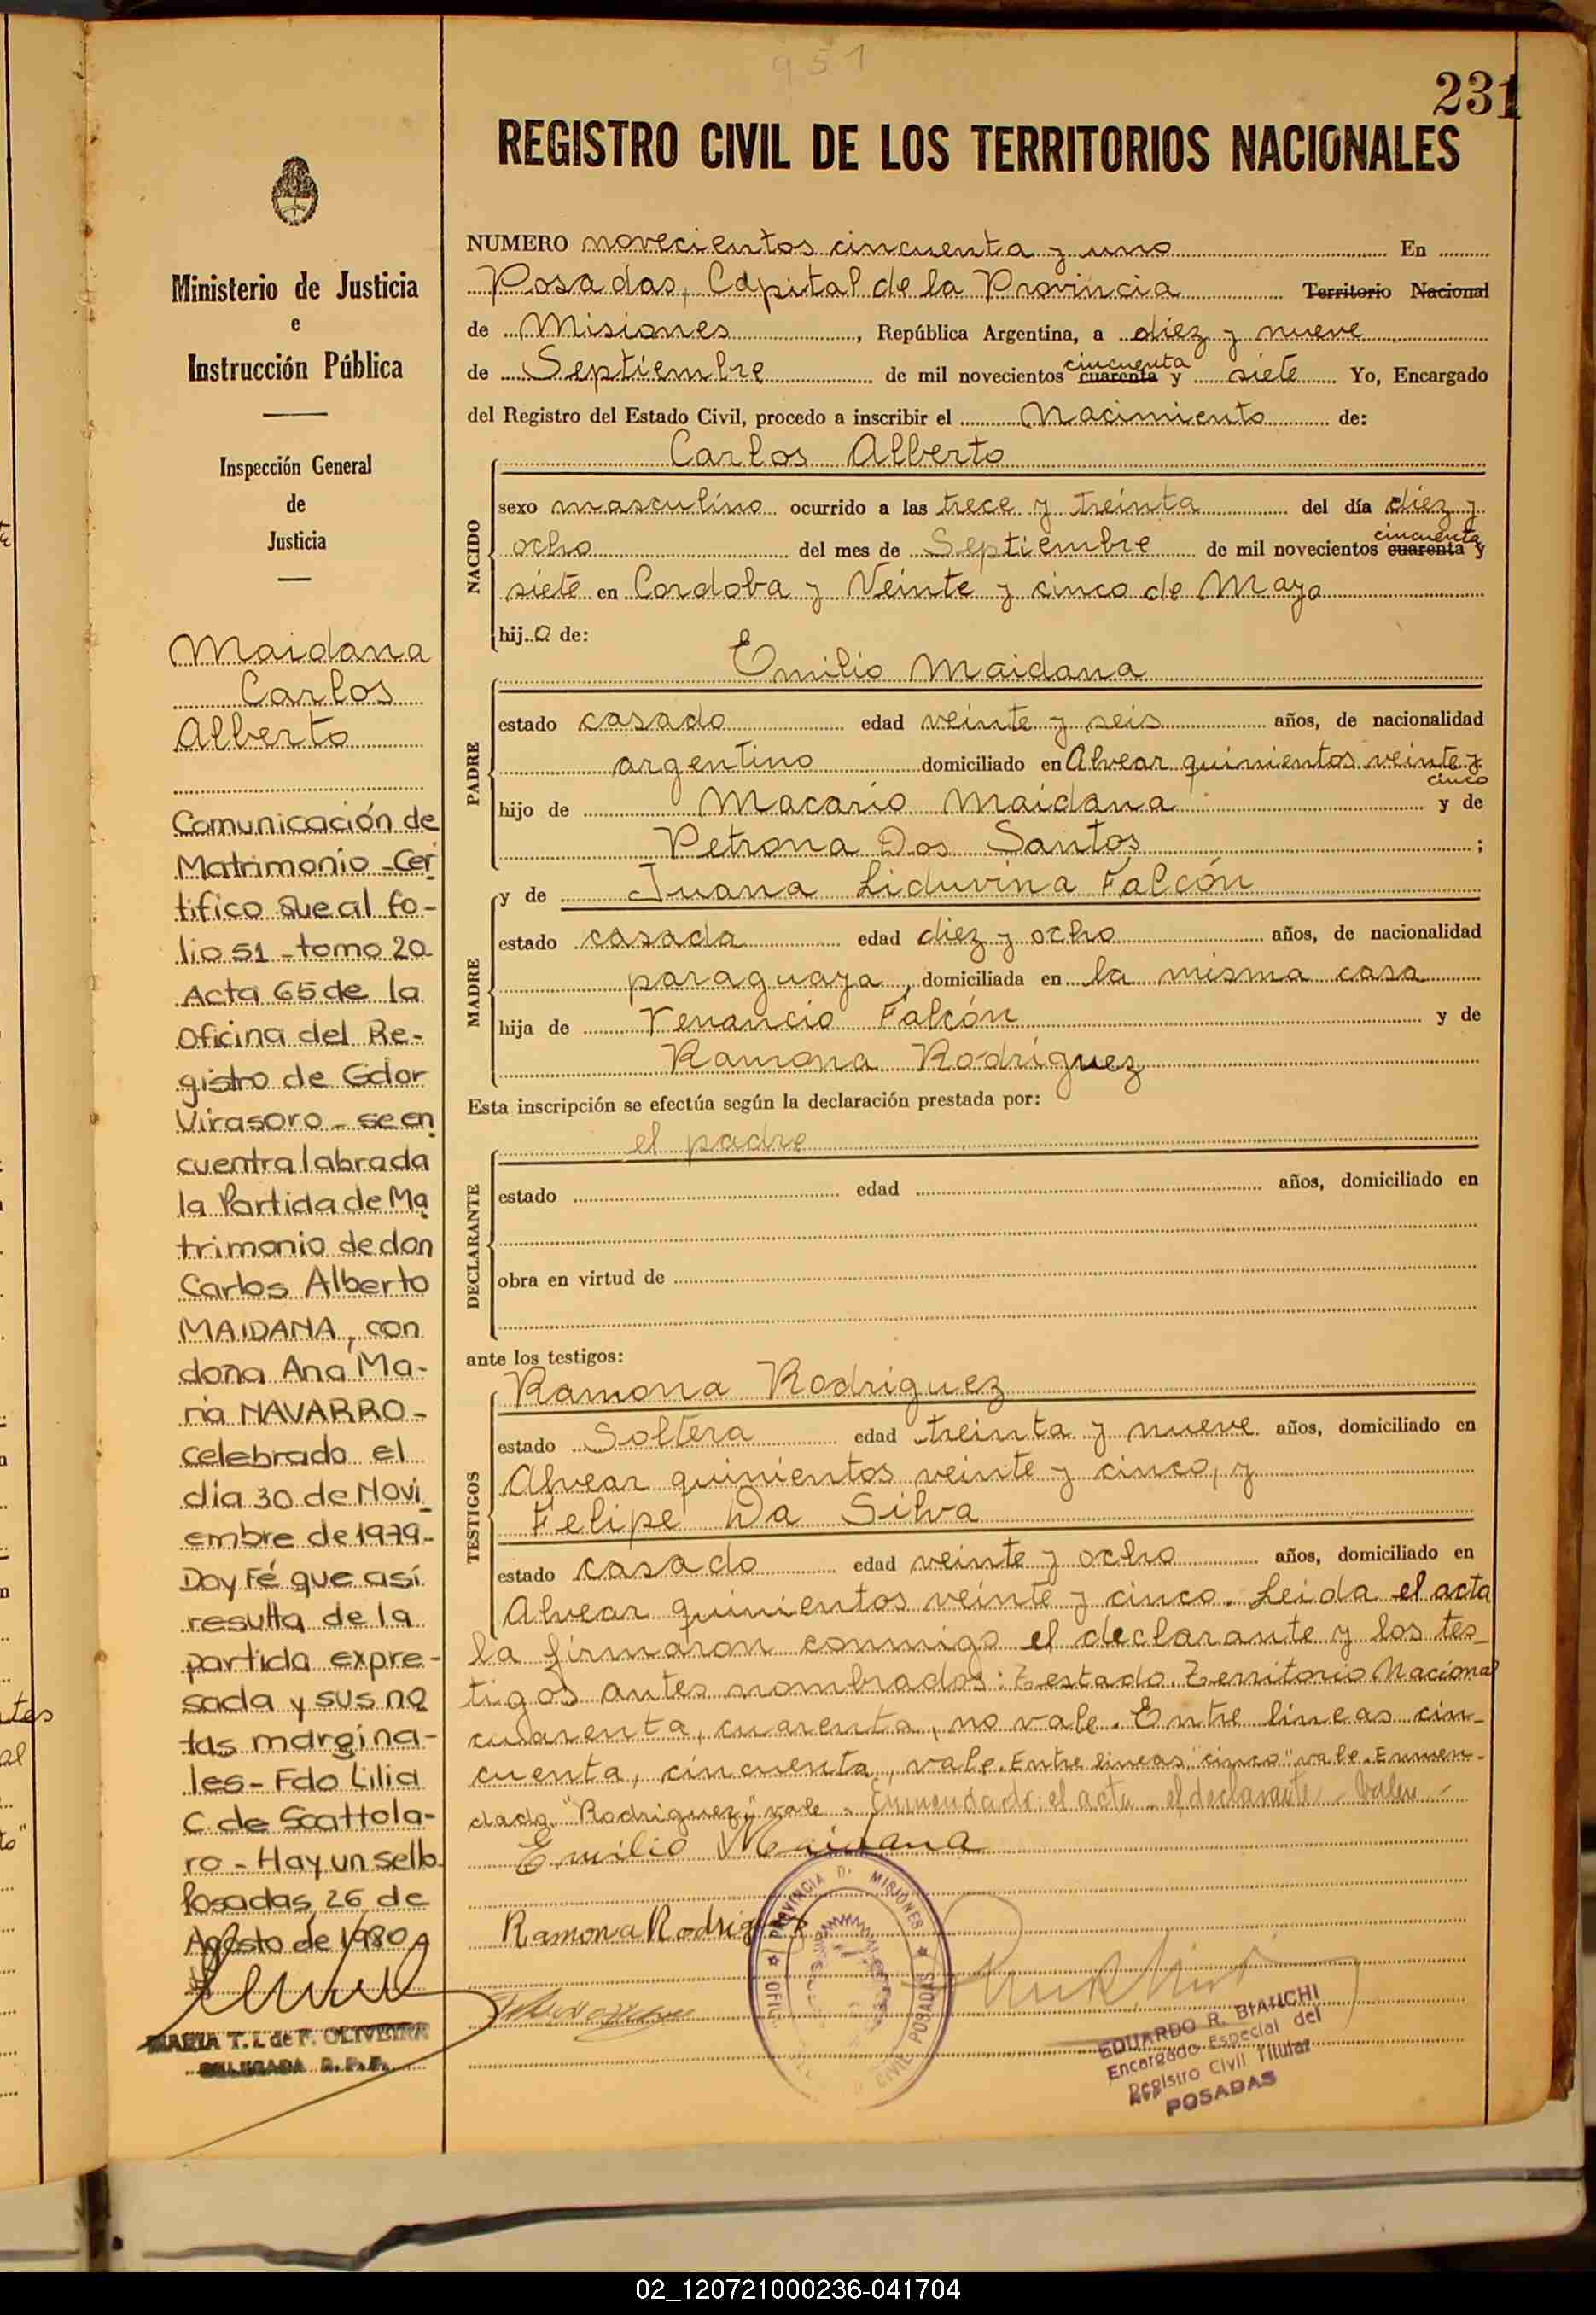 951
231
REGISTRO CIVIL DE LOS TERRITORIOS NACIONALES
Ministerio de Justicia
e
Instrucción Pública
Inspección General
de
Justicia
Maidana
Carlos
Alberto
Comunicación de
Matrimonio - Cer
tifico que al fo-
lio 51 - tomo 20
Acta 65 de la
Oficina del Re-
gistro de Gdor
Virasoro - se en
cuentra labrada
la Partida de Ma
trimonio de don
Carlos Alberto
MAIDANA, con
doña Ana Ma-
ria NAVARRO -
celebrado el
dia 30 de Novi
embre de 1979-
Doy Fé que así
resulta de la
partida expre-
sada y sus no
tas margina-
les - Fdo Lilia
C. de Scattola-
ro - Hay un sello
Posadas, 26 de
Agosto de 1980
MARIA T. I. de F. OLIVEIRA
DELEGADA R. P. P.
NUMERO novecientos cincuenta y uno En
Posadas, Capital de la Provincia Territorio Nacional
de Misiones, República Argentina, a diez y nueve
cincuenta
de Septiembre de mil novecientos cuarenta y siete Yo, Encargado
del Registro del Estado Civil, procedo a inscribir el Nacimiento de:
NACIDO
Carlos Alberto
sexo masculino ocurrido a las trece y treinta del día diez y
cincuenta
ocho del mes de Septiembre de mil novecientos cuarenta y
siete en Cordoba y Veinte y cinco de Mayo
hijo de:
PADRE
Emilio Maidana
estado casado edad veinte y seis años, de nacionalidad
argentino domiciliado en Alvear quinientos veinte y
cinco
hijo de Macario Maidana y de
Petrona Dos Santos ;
MADRE
y de Juana Liduvina Falcón
estado casada edad diez y ocho años, de nacionalidad
paraguaya, domiciliada en la misma casa
hija de Venancio Falcón y de
Ramona Rodríguez
Esta inscripción se efectúa según la declaración prestada por:
DECLARANTE
el padre
estado edad años, domiciliado en
obra en virtud de
ante los testigos:
TESTIGOS
Ramona Rodriguez
estado Soltera edad treinta y nueve años, domiciliado en
Alvear quinientos veinte y cinco, y
Felipe Da Silva
estado casado edad veinte y ocho años, domiciliado en
Alvear quinientos veinte y cinco. Leida el acta
la firmaron conmigo el declarante y los tes-
tigos antes nombrados: Testado. Territorio Nacional
cuarenta, cuarenta, no vale. Entre lineas cin-
cuenta, cincuenta, vale. Entre lineas "cinco" vale. Enmen-
dado "Rodriguez" vale - Enmendado: el acta - el declarante - Valen -
Emilio Maidana
Ramona Rodriguez
PROVINCIA D. MISIONES
POSADAS
EDUARDO R. BIANCHI
Encargado Especial del
Registro Civil Titular
POSADAS
02_120721000236-041704